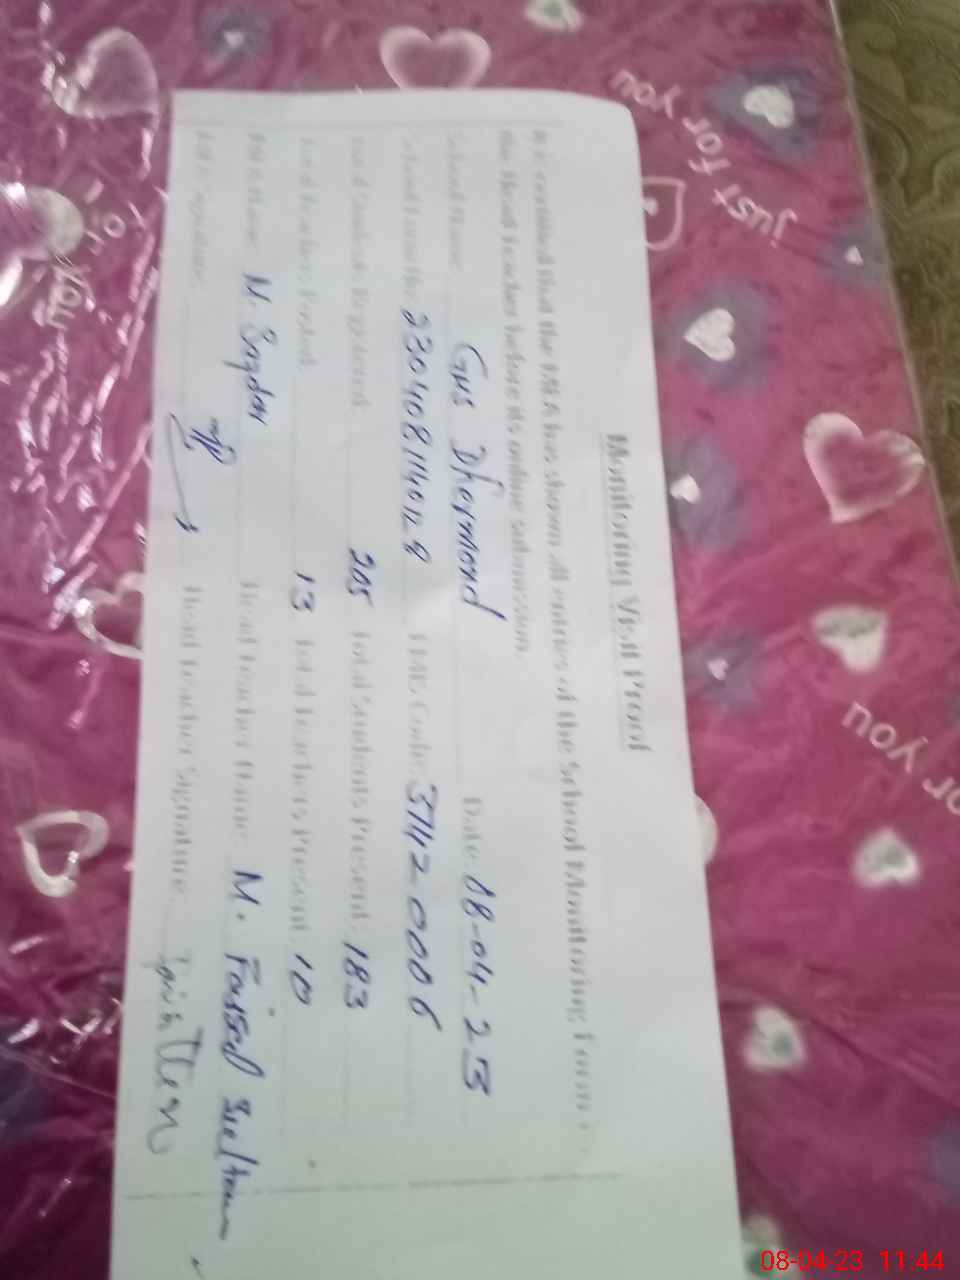 Monitoring Visit Proof
It is certified that the MEA has shown all entries of the School Monitoring Form to
the Head Teacher before its online submission.
School Name: GHS Dharmond Date: 08-04-23
School Form No: 2304081140128 EMIS Code: 37142-0006
Total Students Registered: 205 Total Students Present: 183
Total Teachers Posted: 13 Total Teachers Present: 10
MEA Name: M. Head Teacher Name: M. Faisal
MEA Signature: Head Teacher Signature:
just for you
just for you
or you
or you
08-04-23 11:44